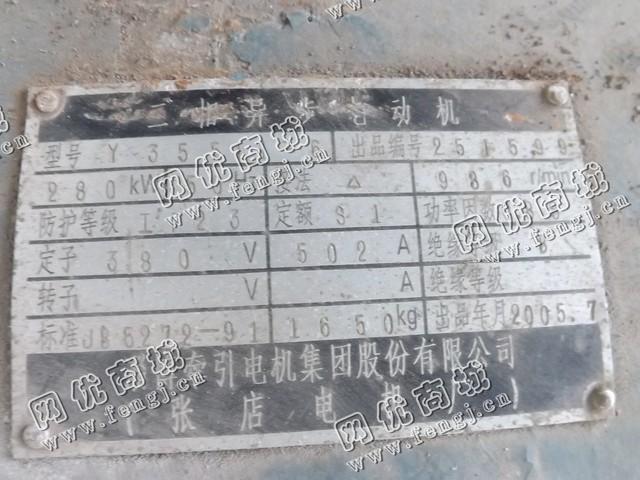 三相异步电动机
型号 Y 355 6 出品编号 251599
280 kW 接法 △ 986 r/min
防护等级 I 23 定额 S1 功率因数
定子 380 V 502 A 绝缘
转子 V A 绝缘等级
标准JB5272-91 1650kg 出品年月2005.7
牵引电机集团股份有限公司
(张店电机)
网优商城
www.fengj.cn
网优商城
www.fengj.cn
网优商城
www.fengj.cn
网优商城
www.fengj.cn
网优商城
www.fengj.cn